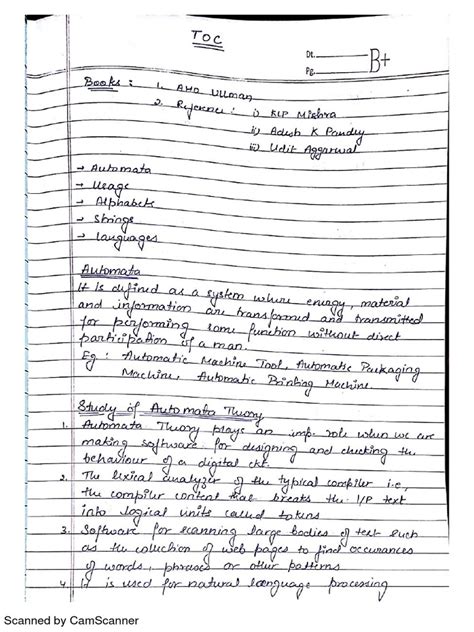 TOC
Dt.
Pg.
B+
Books : 1. AHO Ullman
2. Reference : i) KLP Mishra
ii) Adesh K Pandey
iii) Udit Aggarwal
→ Automata
→ Usage
→ Alphabets
→ Strings
→ Languages
Automata
It is defined as a system where energy, material
and information are transformed and transmitted
for performing some function without direct
participation of a man.
Eg : Automatic Machine Tool, Automatic Packaging
Machine, Automatic Printing Machine.
Study of Automata Theory
1. Automata Theory plays an imp. role when we are
making software for designing and checking the
behaviour of a digital ckt.
2. The lexical analyzer of the typical compiler i.e,
the compiler content that breaks the I/P text
into logical units called tokens
3. Software for scanning large bodies of text such
as the collection of web pages to find occurances
of words, phrases or other patterns
4. It is used for natural language processing
Scanned by CamScanner